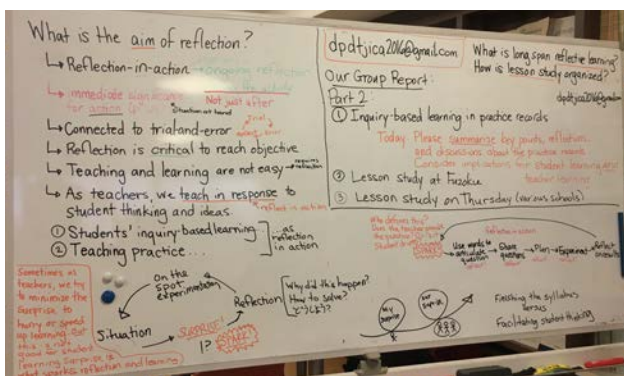 What is the aim of reflection?
↳ Reflection-in-action
↳ immediate significance
for action
Not just after
Situation at hand
↳ Connected to trial and error
↳ Reflection is critical to reach objective
↳ Teaching and learning are not easy → requires reflection
↳ As teachers, we teach in response to
student thinking and ideas.
reflect in action
① Students' inquiry-based learning
② Teaching practice...
...as
reflection
in action
Sometimes as
teachers, we try
to minimize the
surprise, to
hurry or speed
up learning. But
this is not
good for student
learning. Surprise is
what sparks reflection and learning
on the
spot
experimentation
Situation
SURPRISE!
!?
SPARK!
Reflection
Why did this happen?
How to solve?
どうしよう?
dpdtjica2016@gmail.com
What is long span reflective learning?
How is lesson study organized?
dpdtjica2016@gmail.com
Our Group Report:
Part 2
① Inquiry-based learning in practice records
Today: Please summarize key points, reflection,
and discussions about the practice records
Consider implications for student learning and
teacher learning
② Lesson study at Fuzoku
③ Lesson study on Thursday (various schools)
Who defines this?
Does the teacher provide
the question
SPARK!
Reflection in action
Use words to
articulate
question
→ Share
questions
→ Plan
→ Experiment
→ Reflect
on results
my
surprise
our
surprise
Finishing the syllabus
versus
Facilitating student thinking